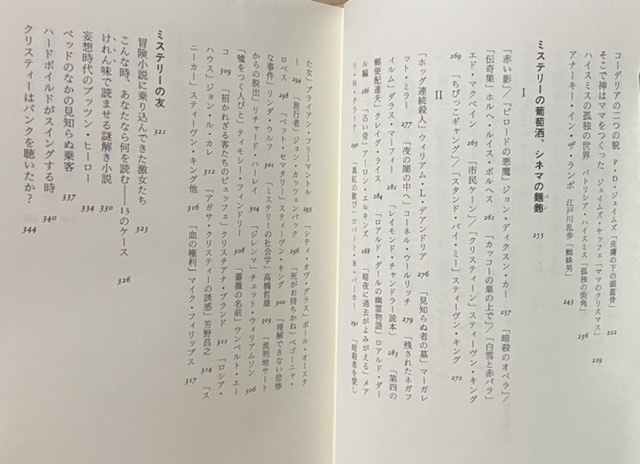 コーデリアの二つの貌 P・D・ジェイムズ『皮膚の下の頭蓋骨』 222
そこで神はママをつくった ジェイムズ・ヤッフェ『ママのクリスマス』 229
ハイスミスの孤独の世界 パトリシア・ハイスミス『孤独の街角』 236
アナーキー・イン・ザ・ランポ 江戸川乱歩『蜘蛛男』 243
ミステリーの葡萄酒、シネマの麺麭 255
I
『赤い影』/『ビロードの悪魔』ジョン・ディクスン・カー 257 『暗殺のオペラ』/
『伝奇集』ホルヘ・ルイス・ボルヘス 261 『カッコーの巣の上で』/『白雪と赤バラ』
エド・マクベイン 265 『市民ケーン』/『クリスティーン』スティーヴン・キング
269 『ちびっこギャング』/『スタンド・バイ・ミー』スティーヴン・キング 272
II
『ホッグ連続殺人』ウィリアム・L・デアンドリア 276 『見知らぬ者の墓』マーガレ
ット・ミラー 277 『夜の闇の中へ』コーネル・ウールリッチ 279 『残されたネガフ
ィルム』ダグラス・マーフィー 281 『レイモンド・チャンドラー読本』 283 『第四の
郵便配達夫』クレイグ・ライス 284 『ロアルド・ダールの幽霊物語』ロアルド・ダー
ル編 『古い骨』アーロン・エルキンズ 288 『暗夜に過去がよみがえる』メア
リ・H・クラーク 『真紅の歓び』ロバート・B・パーカー 291 『暗殺者を愛し
た女』ブライアン・フリーマントル 293 『シティ・オヴ・グラス』ポール・オースタ
ー 294 『旅行者』ジョン・カッツェンバック 296 『死がお待ちかね』ベゴーニャ・
ロペス 298 『ペット・セマタリー』スティーヴン・キング 300 『理解できない悲惨
な事件』リンダ・ウルフ 301 『ミステリーの社会学』高橋哲雄 303 『流刑地サート
からの脱出』リチャード・ハーレイ 304 『ジレンマ』チェット・ウィリアムソン 306
『嘘をつく人びと』ティモシー・フィンドリー 308 『薔薇の名前』ウンベルト・エー
コ 309 『招かれざる客たちのビュッフェ』クリスチアナ・ブランド 311 『ロシア・
ハウス』ジョン・ル・カレ 312 『アガサ・クリスティーの誘惑』芳野昌之 314 『ス
ニーカー』スティーヴン・キング他 316 『血の権利』マイク・フィリップス 317
ミステリーの友 321
冒険小説に乗り込んできた激女たち 323
こんな時、あなたら何を読む――13のケース 326
けれん味で読ませる謎解き小説 330
妄想時代のプッツン・ヒーロー 334
ベッドのなかの見知らぬ乗客 337
ハードボイルドがスイングする時 340
クリスティーはパンクを聴いたか? 344